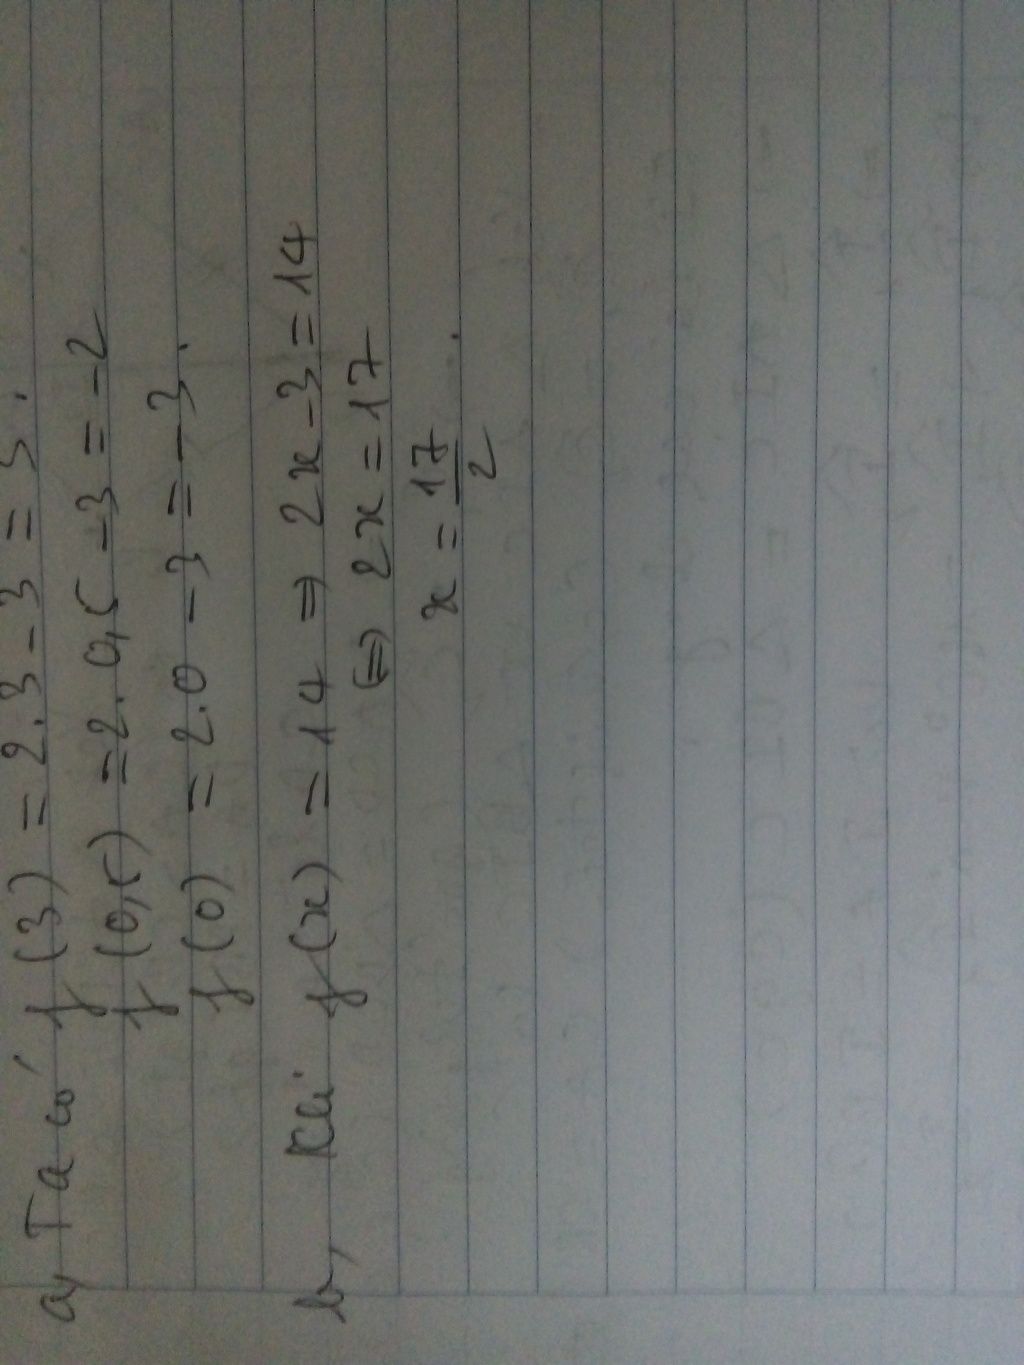 a, Ta có f(3) = 2.3-3 = 3.
f(0,5) = 2.0,5-3 = -2
f(0) = 2.0-3 = -3.
b, Khi f(x) = 14 => 2x-3 = 14
<=> 2x = 17
x = 17/2.